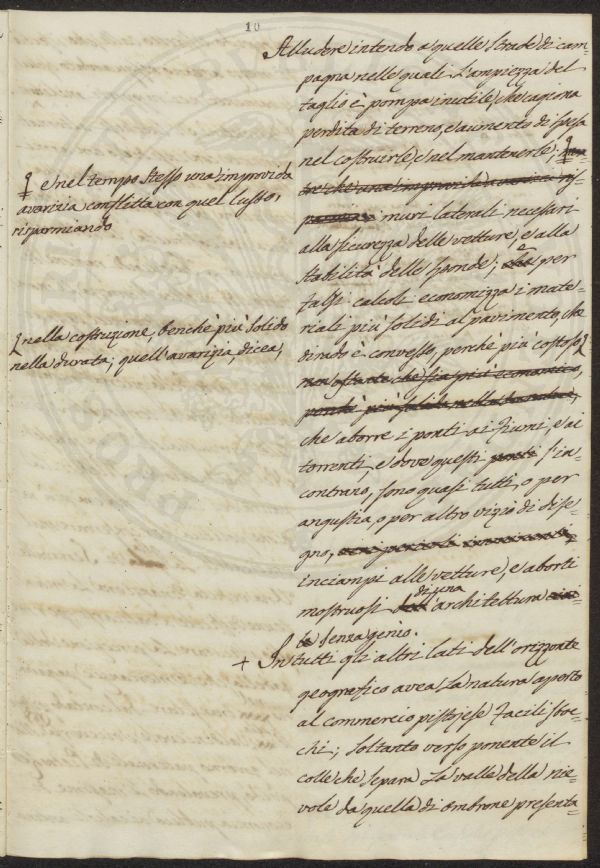 10
Alludere intendo a quelle strade di cam-
pagna nelle quali l'ampiezza del
taglio è pompa inutile, che cagiona
perdita di terreno, e aumento di spesa
nel costruirle e nel mantenerle;
tre che una improvvida avarizia ris-
parmia muri laterali necessari
alla sicurezza delle vetture, e alla
stabilità delle sponde; che e per
falsi calcoli economizza i mate-
riali più solidi al pavimento, che
di rado è convesso, perchè più costoso
non ostante che sia più economico,
perchè più solido nella durata;
che aborre i ponti ai fiumi, e ai
torrenti, e dove questi ponti s'in-
contrano, sono quasi tutti, o per
angustia, o per altro vizio di dise-
gno,
inciampi alle vetture, e aborti
mostruosi di una architettura
senza genio.
+ In tutti gli altri lati dell'orizzonte
geografico avea la natura aperto
al commercio pistojese facili sboc-
chi; soltanto verso ponente il
colle che separa la valle della nie-
vole da quella di ombrone presenta-
e nel tempo stesso una improvida
avarizia conflitta con quel lusso,
risparmiando
nella costruzione, benchè più solido
nella durata; quell'avarizia, dicea,